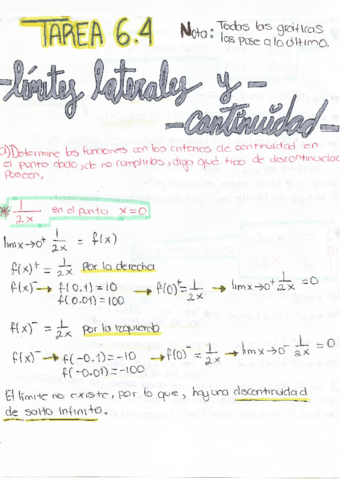 TAREA 6.4
Nota: Todas las gráficas
las pase a lo último.
-límites laterales y-
-continuidad-
a) Determine las funciones con los criterios de continuidad en
el punto dado, de no cumplirlos, diga qué tipo de discontinuidad
poseen.
* 1/2x en el punto x=0
lim x→0⁺ 1/2x = f(x)
f(x)⁺ = 1/2x Por la derecha
f(x)⁻ → f(0.1)=10 → f(0)⁺= 1/2x → lim x→0⁺ 1/2x = 0
f(0.01)=100
f(x)⁻ = 1/2x Por la izquierda
f(x)⁻ → f(-0.1)=-10 → f(0)⁻ = 1/2x → lim x→0⁻ 1/2x = 0
f(-0.01)=-100
El límite no existe, por lo que, hay una discontinuidad
de salto infinito.